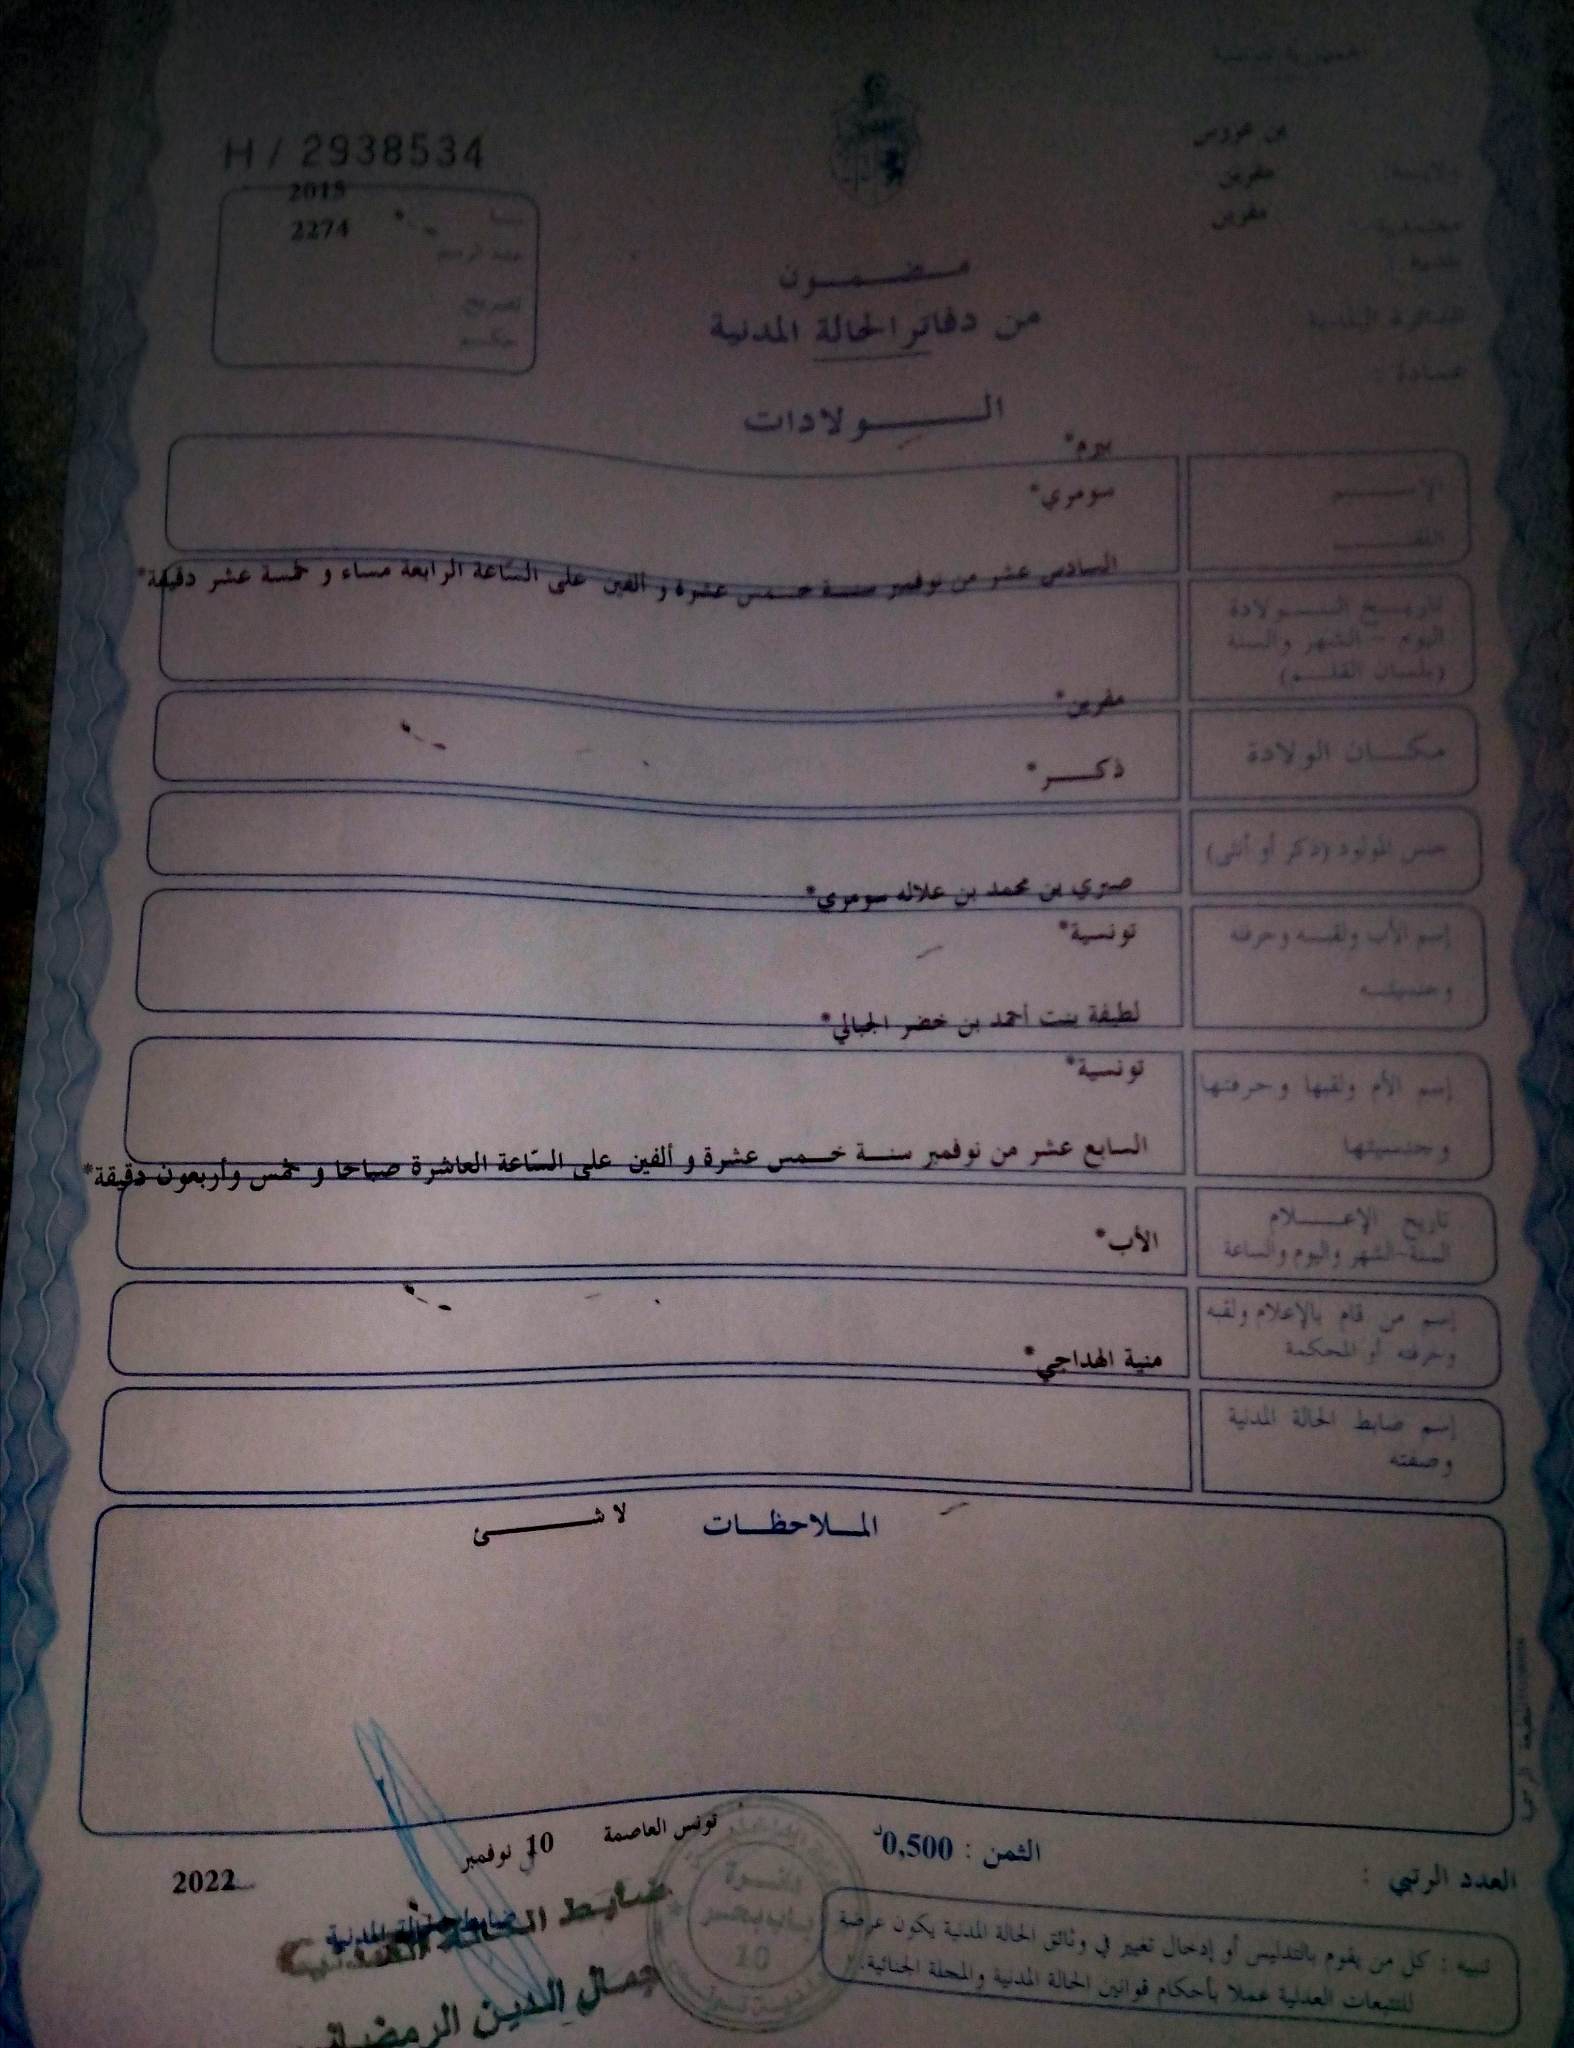 الجمهورية التونسية
H / 2938534
بن عروس
ولايـــة :
مقرين
معتمدية :
مقرين
بلدية :
الدائرة البلدية
عمادة :
2015
سنة
2274
عدد الرسم
تصريح
حكم
مـضـمـون
من دفاتر الحالة المدنية
الـولادات
بيرم*
الإسم
سومري*
اللقب
السادس عشر من نوفمبر سنة خمس عشرة و ألفين على السّاعة الرابعة مساء و خمسة عشر دقيقة*
تاريخ الولادة
اليوم - الشهر والسنة
(بلسان القلم)
مقرين*
مكان الولادة
ذكر*
جنس المولود (ذكر أو أنثى)
صبري بن محمد بن علاله سومري*
إسم الأب ولقبه وحرفته
تونسية*
وجنسيته
لطيفة بنت أحمد بن خضر الجبالي*
تونسية*
إسم الأم ولقبها وحرفتها
وجنسيتها
السابع عشر من نوفمبر سنة خمس عشرة و ألفين على السّاعة العاشرة صباحا و خمس وأربعون دقيقة*
تاريخ الإعلام
السنة-الشهر واليوم والساعة
الأب*
إسم من قام بالإعلام ولقبه
وحرفته أو المحكمة
منية الهداجي*
إسم ضابط الحالة المدنية
وصفته
الملاحظات
لا شئ
المطبعة الرسمية
العدد الرتبي :
الثمن : 0,500د
تونس العاصمة 10 نوفمبر 2022
ضابط الحالة المدنية
ضابط الحالة المدنية
جمال الدين الرمضاني
دائرة
باب بحر
10
بلدية تونس
تنبيه : كل من يقوم بالتدليس أو إدخال تغيير في وثائق الحالة المدنية يكون عرضة
للتتبعات العدلية عملا بأحكام قوانين الحالة المدنية والمجلة الجنائية.